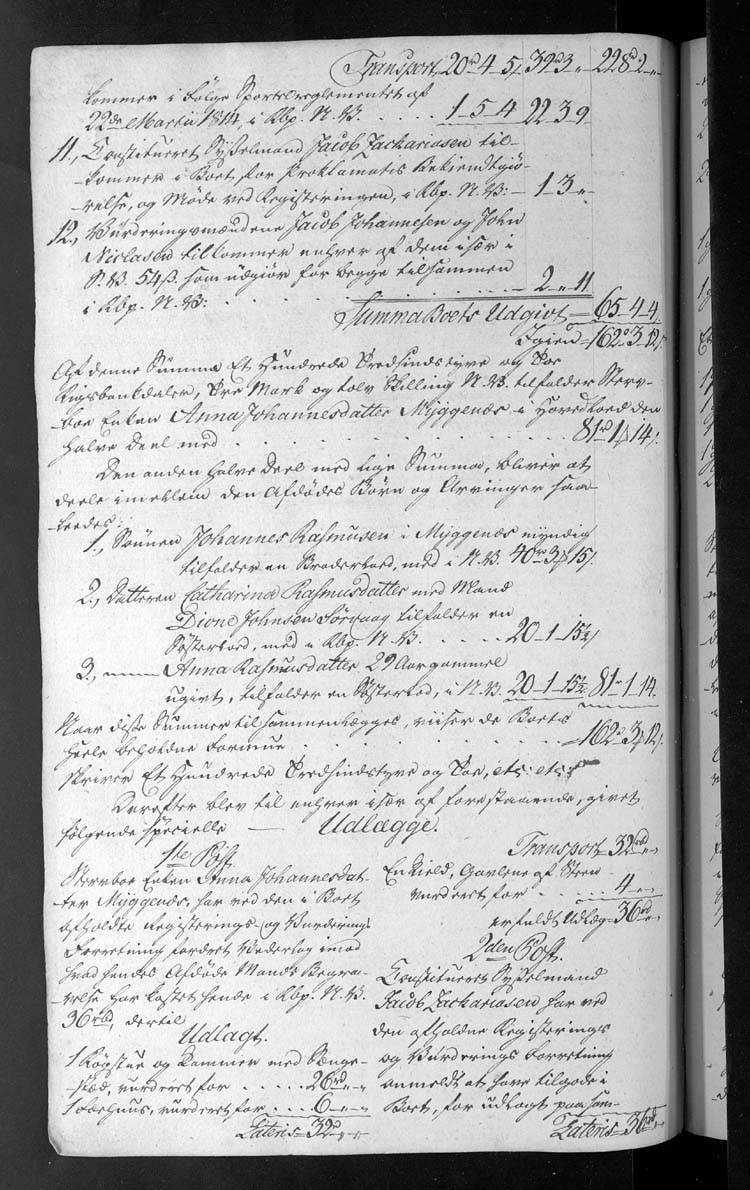 Transport 20 4 5 39 3 " 228 2 "
kommer i Følge Sportelreglementet af
22de Martii 1814, i Rbp. N. V. . . . . 1 5 4 22 3 9
11., Constitueret Sysselmand Jacob Zachariasen til-
kommer i Boet, for Proklamatis Bekiendtgjø-
relse, og Møde ved Registeringen, i Rbp. N. V: 1 3 "
12., Vurderingsmændene Jacob Johannesen og John
Niclasen tilkommer enhver af dem især i
S.V. 54ß. som udgiør for begge tilsammen
i Rbp. N. V: . . . . . . 2 " 11
Summa Boets Udgivt 65 4 4
Igien 162 3 12
Af denne Summa Et Hundrede Tredsindstyve og Toe
Rigsbankdaler, Tre Mark og tolv Skilling N. V. tilfalder Sterv-
boe Enken Anna Johannesdatter Myggenæs i Hovedlod den
halve Deel med . . . . . . 81 1 14
Den anden halve Deel med lige Summa, bliver at
deele imellem den Afdødes Børn og Arvinger saa-
leedes:
1., Sønnen Johannes Rasmusen i Myggenæs myndig
tilfalder en Broderlod, med i N. V. 40 3 15
2., Datteren Catharina Rasmusdatter med Mand
Dione Johnsen Sørvaag tilfalder en
Søsterlod, med i Rbp. N. V. . . . . 20 1 15½
3., Anna Rasmusdatter 29 Aar gammel
ugivt, tilfalder en Søsterlod, i N. V. 20 1 15½ 81 1 14
Naar disse Summer tilsammenlægges, viiser de Boets
heele beholdne Formue . . . . . 162 3 12
skriver Et Hundrede Tredsindstyve og Toe, etc: etc:
Derefter blev til enhver især af forestaaende, givet
følgende specielle — Udlægge.
1ste Post.
Stervboe Enken Anna Johannesdat-
ter Myggenæs, har ved den i Boet
afholdte Registerings- og Vurderings
Forretning fordret Vederlag imod
hvad hendes Afdøde Mands Begra-
velse har kostet hende i Rbp. N. V.
36rbd, dertil
Udlagt.
1 Røgstue og Kammer med Senge-
stæd, vurderet for . . . . 26rd " "
1 Foehuus, vurderet for . . . 6 " "
Lateris 32 " "
Transport 32rbd " "
En Hield, Gavlene af Steen
vurderet for . . . . . 4 " "
er fuldt Udlæg 36rd " "
2den Post.
Constitueret Sysselmand
Jacob Zachariasen har ved
den afholdne Registerings
og Vurderings Forretning
anmeldt at have tilgode i
Boet, for udlagt paa
Lateris 36rd " "